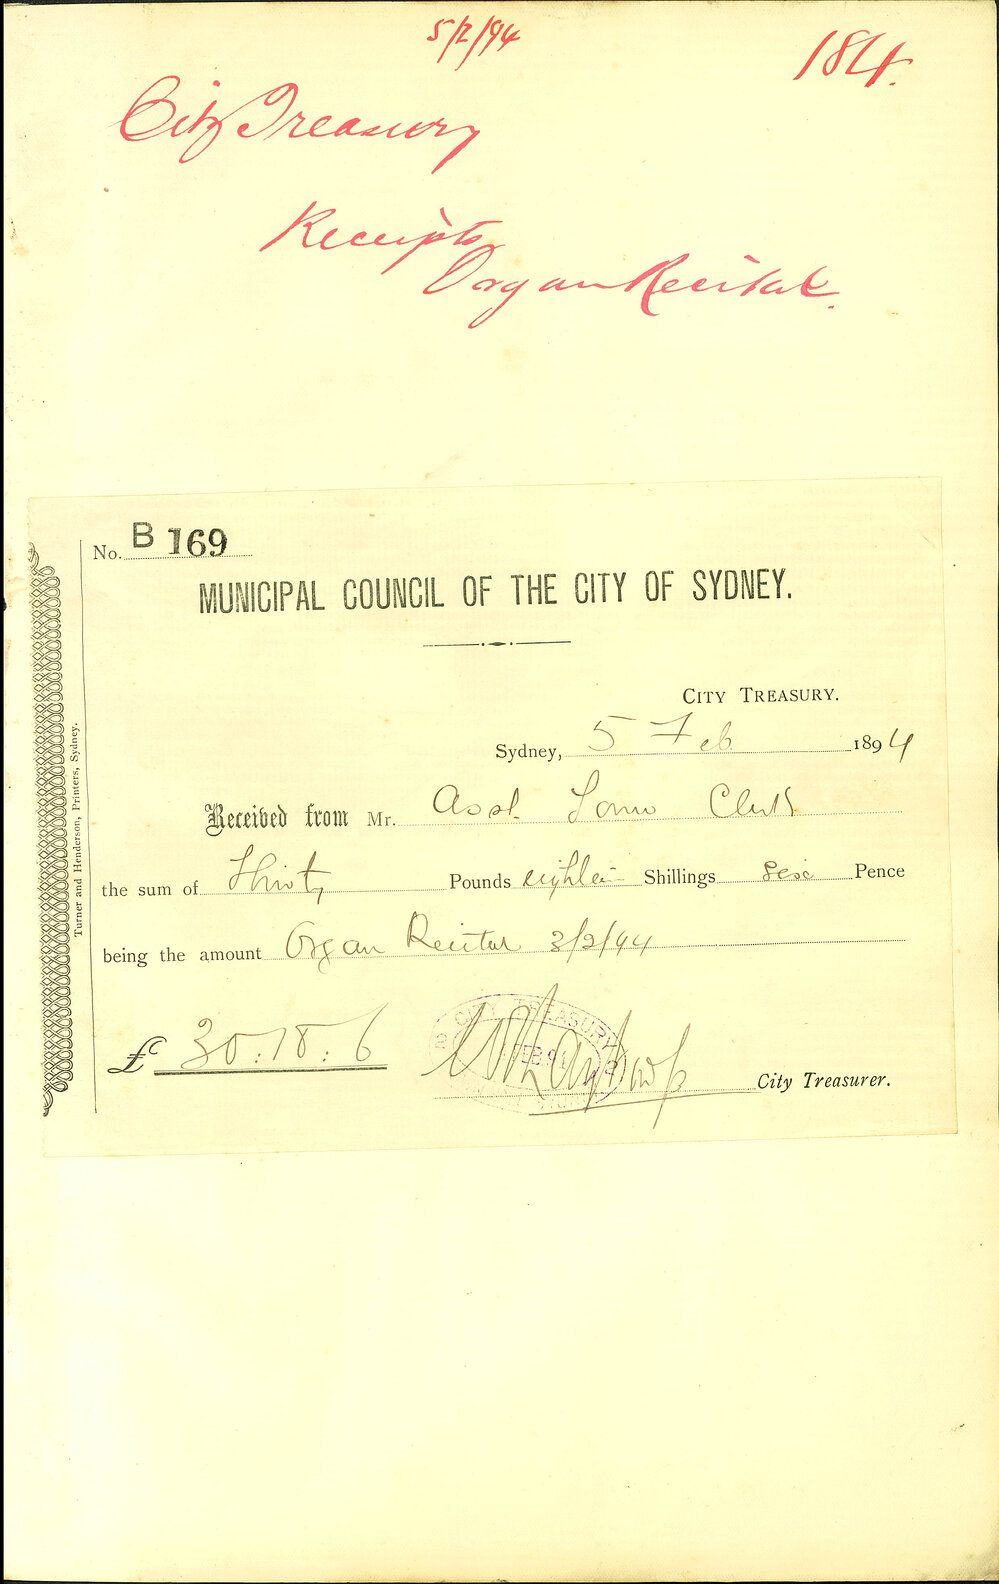 5/2/94
184.
City Treasury
Receipts
Organ Recital.
No. B 169
MUNICIPAL COUNCIL OF THE CITY OF SYDNEY.
CITY TREASURY.
Sydney, 5 Feb 1894
Received from Mr. Asst. Town Clerk
the sum of Thirty Pounds eighteen Shillings sixe Pence
being the amount Organ Recital 3/2/94
£ 30:18:6
CITY TREASURY
FEB 94
City Treasurer.
Turner and Henderson, Printers, Sydney.